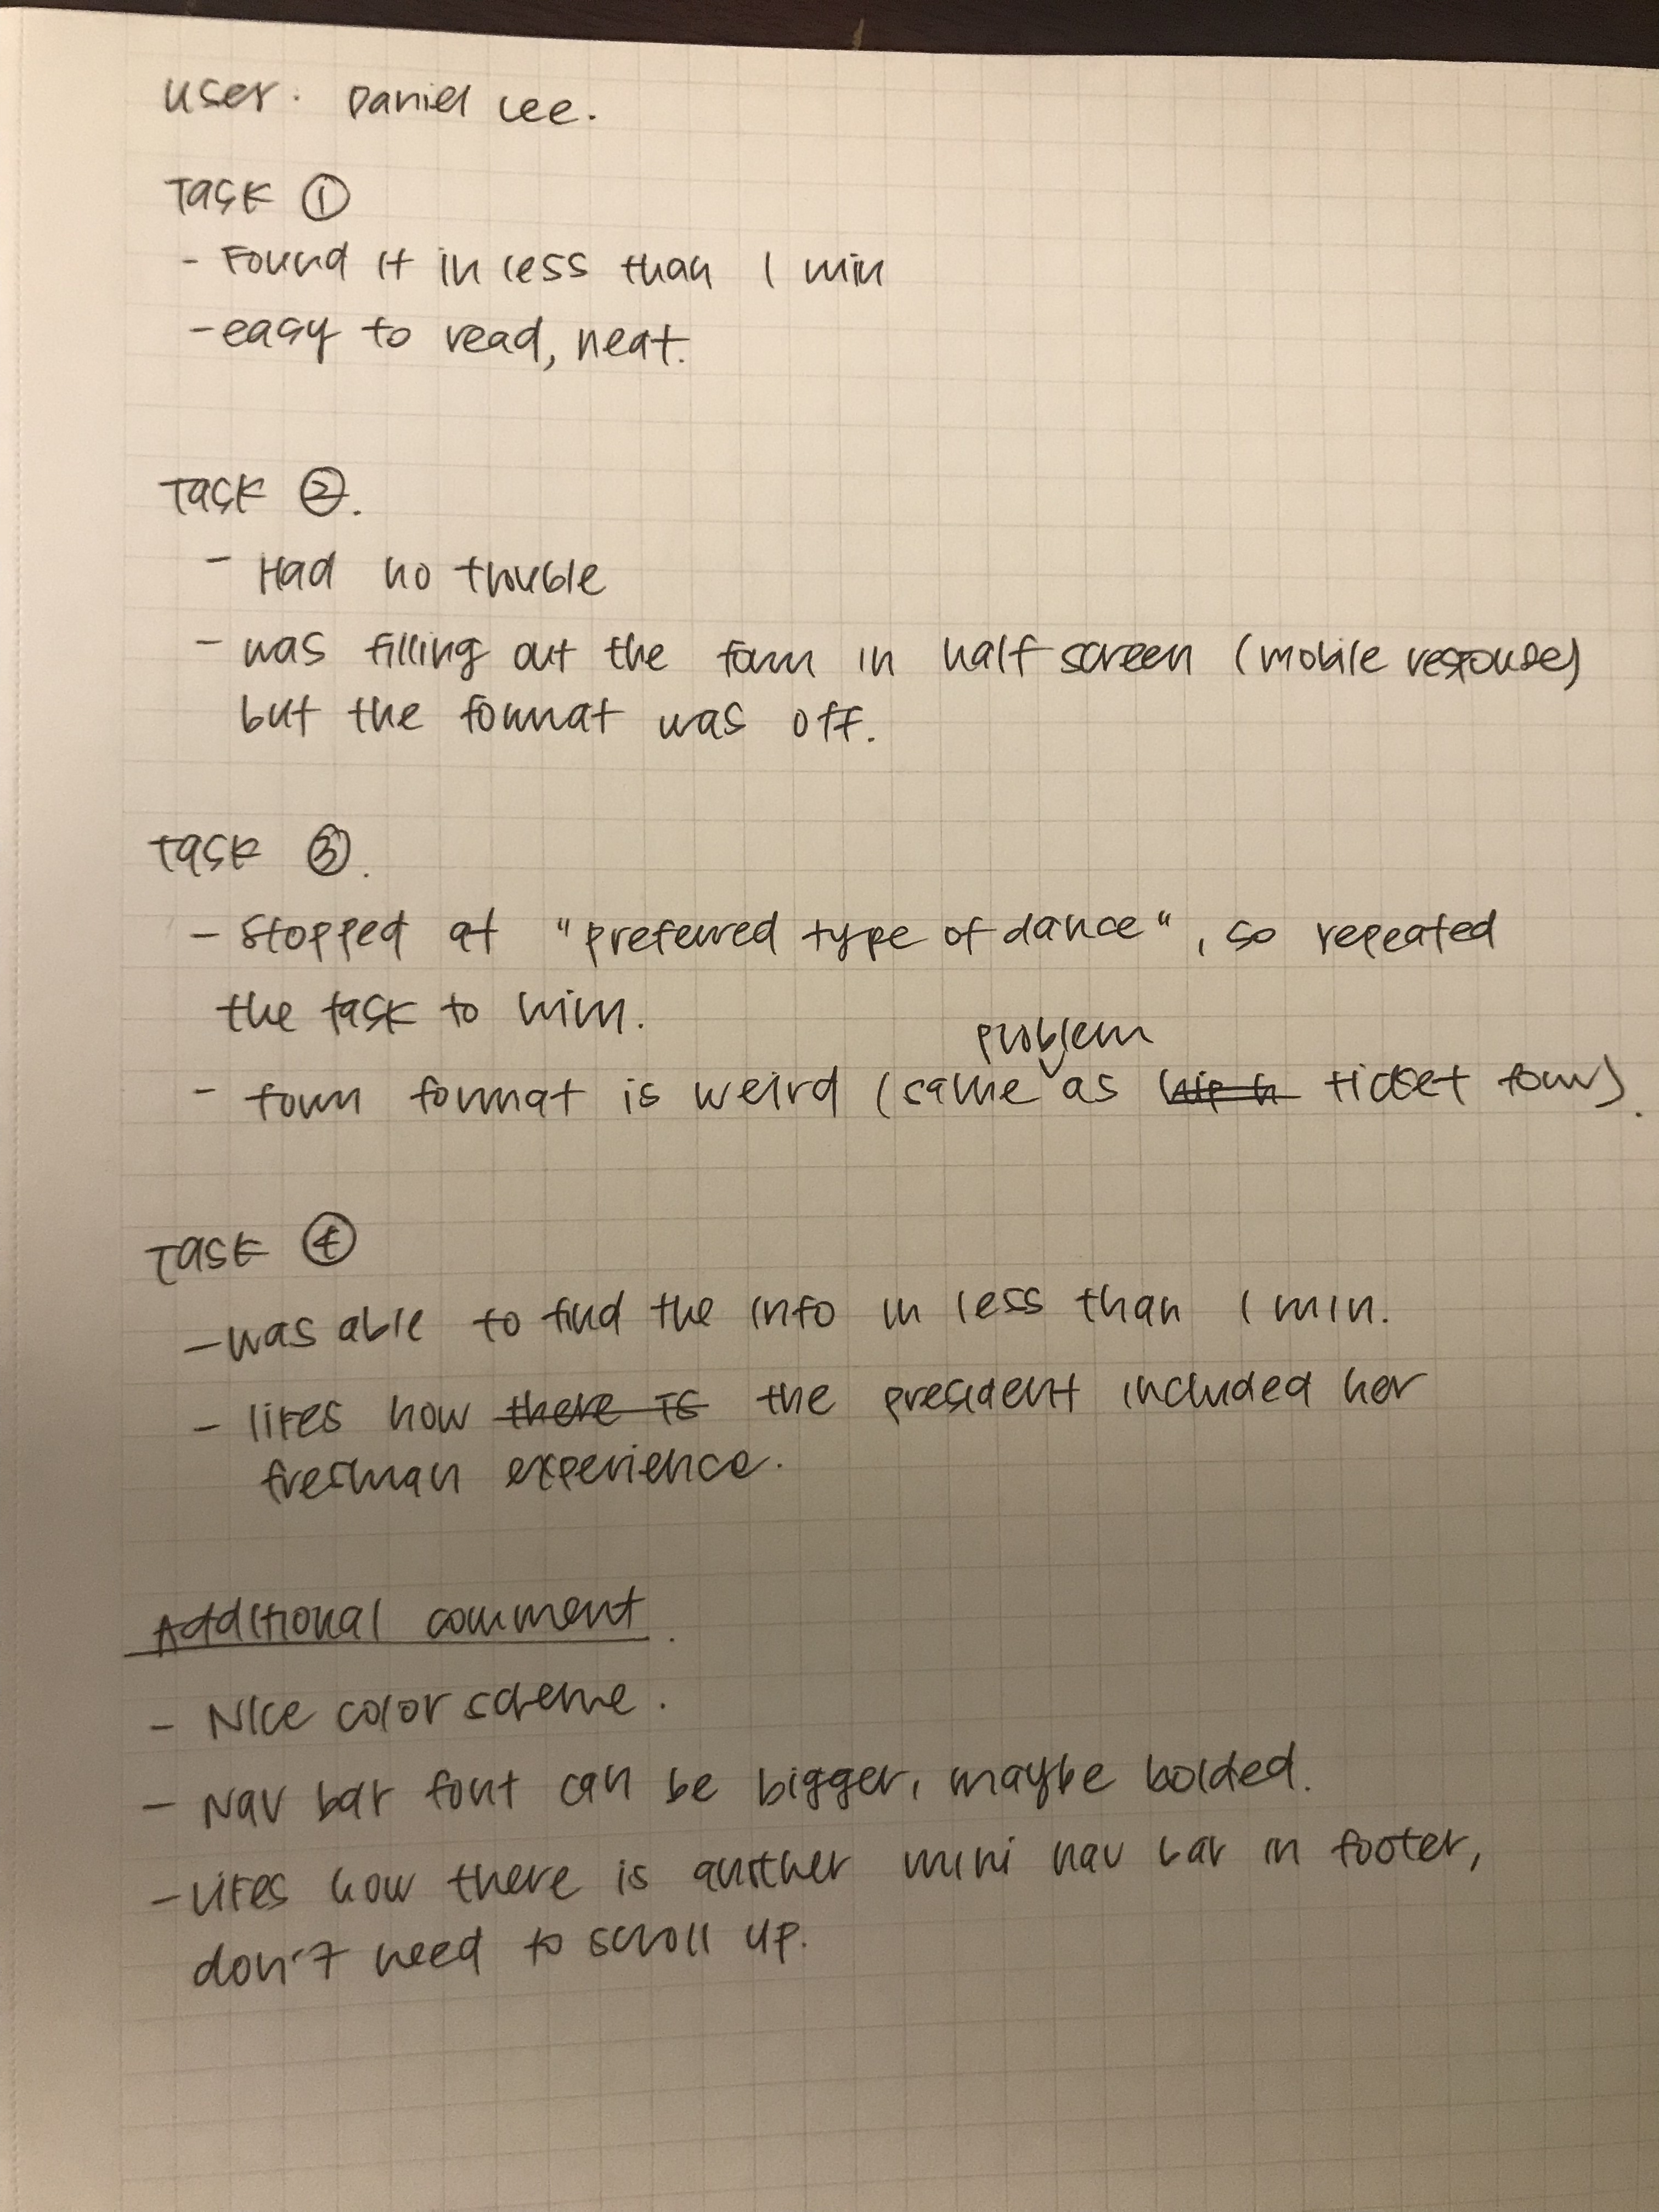 User: Daniel Lee.
Task ①
- Found it in less than 1 min
- easy to read, neat.
Task ②.
- Had no trouble
- was filling out the form in half screen (mobile response)
but the format was off.
Task ③.
- Stopped at "preferred type of dance", so repeated
the task to him.
problem
- form format is weird (same as ticket form).
Task ④
- was able to find the info in less than 1 min.
- likes how there is the president included her
freshman experience.
Additional comment.
- Nice color scheme.
- Nav bar font can be bigger, maybe bolded.
- Likes how there is another mini nav bar in footer,
don't need to scroll up.